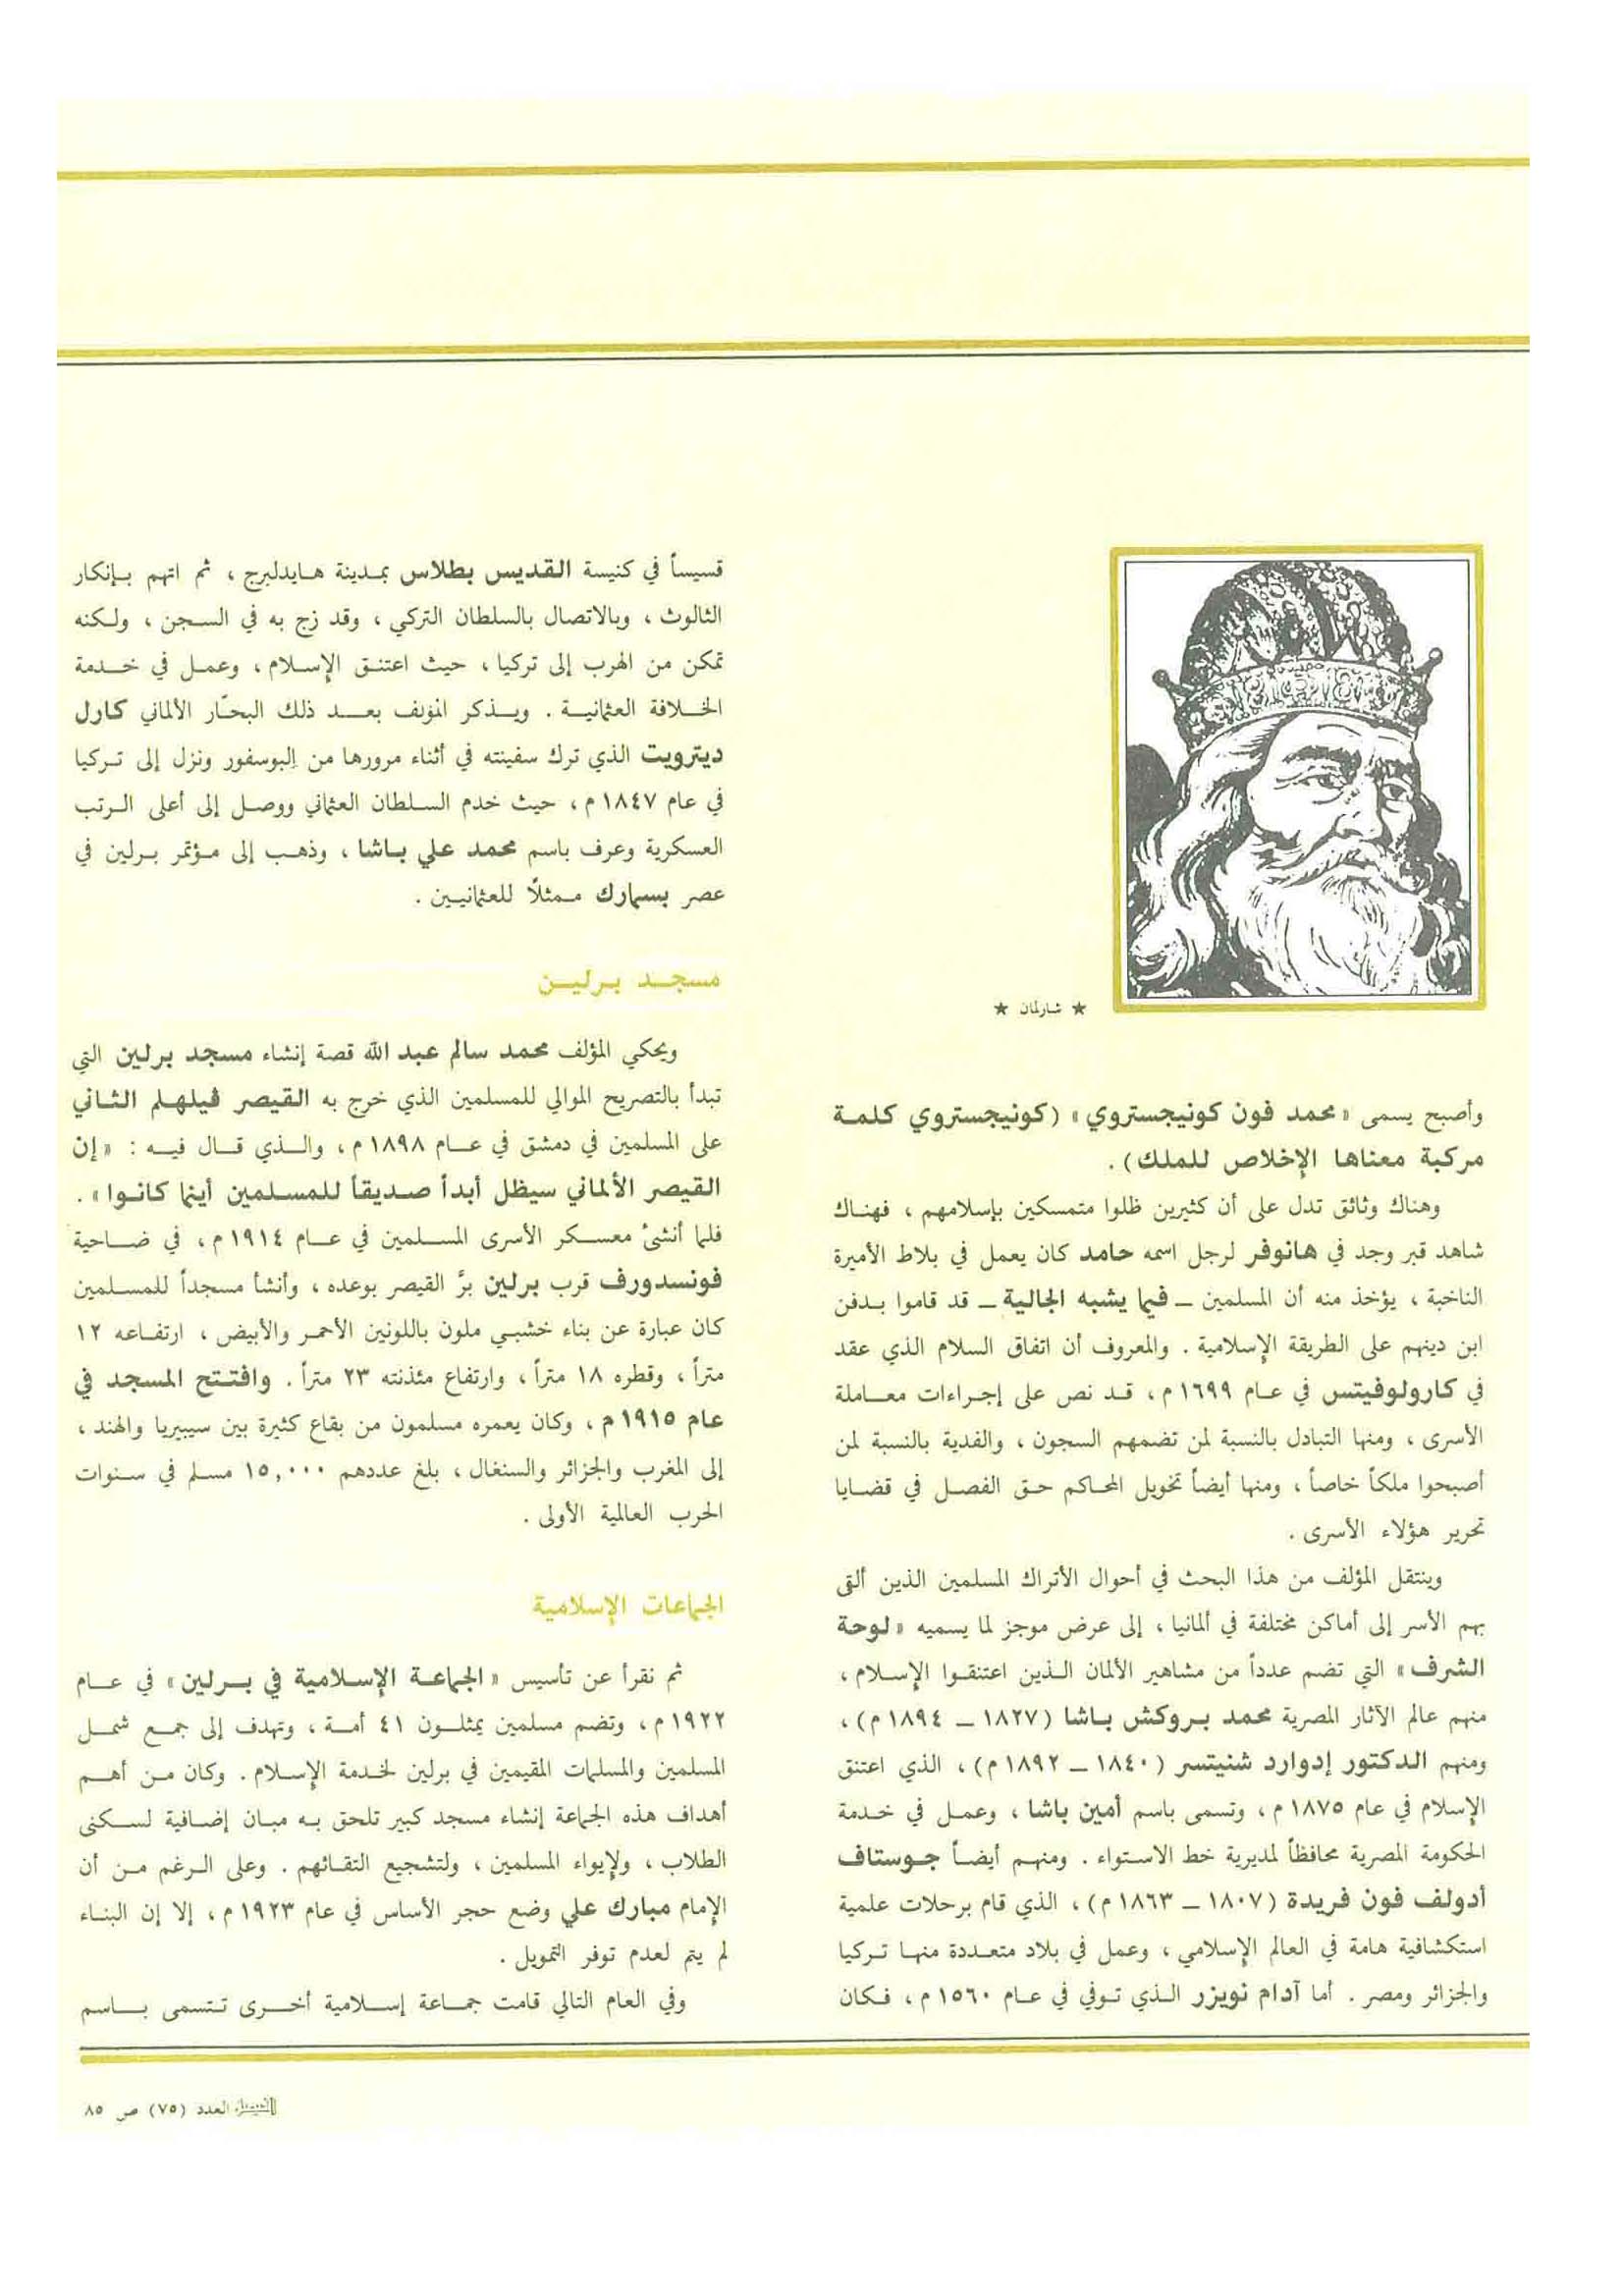 ★ شارلمان ★
وأصبح يسمى «محمد فون كونيجستروي» (كونيجستروي كلمة
مركبة معناها الإخلاص للملك) .
وهناك وثائق تدل على أن كثيرين ظلوا متمسكين بإسلامهم ، فهناك
شاهد قبر وجد في هانوفر لرجل اسمه حامد كان يعمل في بلاط الأميرة
الناخبة ، يؤخذ منه أن المسلمين ــ فيما يشبه الجالية ــ قد قاموا بدفن
ابن دينهم على الطريقة الإسلامية . والمعروف أن اتفاق السلام الذي عقد
في كارولوفيتس في عام ١٦٩٩ م ، قد نص على إجراءات معاملة
الأسرى ، ومنها التبادل بالنسبة لمن تضمهم السجون ، والفدية بالنسبة لمن
أصبحوا ملكاً خاصاً ، ومنها أيضاً تخويل المحاكم حق الفصل في قضايا
تحرير هؤلاء الأسرى .
وينتقل المؤلف من هذا البحث في أحوال الأتراك المسلمين الذين ألقى
بهم الأسر إلى أماكن مختلفة في ألمانيا ، إلى عرض موجز لما يسميه «لوحة
الشرف» التي تضم عدداً من مشاهير الألمان الذين اعتنقوا الإسلام ،
منهم عالم الآثار المصرية محمد بروكش باشا (١٨٢٧ ــ ١٨٩٤ م) ،
ومنهم الدكتور إدوارد شنيتسر (١٨٤٠ ــ ١٨٩٢ م) ، الذي اعتنق
الإسلام في عام ١٨٧٥ م ، وتسمى باسم أمين باشا ، وعمل في خدمة
الحكومة المصرية محافظاً لمديرية خط الاستواء . ومنهم أيضاً جوستاف
أدولف فون فريدة (١٨٠٧ ــ ١٨٦٣ م) ، الذي قام برحلات علمية
استكشافية هامة في العالم الإسلامي ، وعمل في بلاد متعددة منها تركيا
والجزائر ومصر . أما آدام نويزر الذي توفي في عام ١٥٦٠ م ، فكان
قسيساً في كنيسة القديس بطلاس بمدينة هايدلبرج ، ثم اتهم بإنكار
الثالوث ، وبالاتصال بالسلطان التركي ، وقد زج به في السجن ، ولكنه
تمكن من الهرب إلى تركيا ، حيث اعتنق الإسلام ، وعمل في خدمة
الخلافة العثمانية . ويذكر المؤلف بعد ذلك البحّار الألماني كارل
ديترويت الذي ترك سفينته في أثناء مرورها من البوسفور ونزل إلى تركيا
في عام ١٨٤٧ م ، حيث خدم السلطان العثماني ووصل إلى أعلى الرتب
العسكرية وعرف باسم محمد علي باشا ، وذهب إلى مؤتمر برلين في
عصر بسمارك ممثلاً للعثمانيين .
مسجد برلين
ويحكي المؤلف محمد سالم عبد الله قصة إنشاء مسجد برلين التي
تبدأ بالتصريح الموالي للمسلمين الذي خرج به القيصر ڤيلهلم الثاني
على المسلمين في دمشق في عام ١٨٩٨ م ، والذي قال فيه : «إن
القيصر الألماني سيظل أبداً صديقاً للمسلمين أينما كانوا» .
فلما أنشئ معسكر الأسرى المسلمين في عام ١٩١٤ م ، في ضاحية
فونسدورف قرب برلين برَّ القيصر بوعده ، وأنشأ مسجداً للمسلمين
كان عبارة عن بناء خشبي ملون باللونين الأحمر والأبيض ، ارتفاعه ١٢
متراً ، وقطره ١٨ متراً ، وارتفاع مئذنته ٢٣ متراً . وافتتح المسجد في
عام ١٩١٥ م ، وكان يعمره مسلمون من بقاع كثيرة بين سيبيريا والهند ،
إلى المغرب والجزائر والسنغال ، بلغ عددهم ١٥,٠٠٠ مسلم في سنوات
الحرب العالمية الأولى .
الجماعات الإسلامية
ثم نقرأ عن تأسيس «الجماعة الإسلامية في برلين» في عام
١٩٢٢ م ، وتضم مسلمين يمثلون ٤١ أمة ، وتهدف إلى جمع شمل
المسلمين والمسلمات المقيمين في برلين لخدمة الإسلام . وكان من أهم
أهداف هذه الجماعة إنشاء مسجد كبير تلحق به مبان إضافية لسكنى
الطلاب ، ولإيواء المسلمين ، ولتشجيع التقائهم . وعلى الرغم من أن
الإمام مبارك علي وضع حجر الأساس في عام ١٩٢٣ م ، إلا إن البناء
لم يتم لعدم توفر التمويل .
وفي العام التالي قامت جماعة إسلامية أخرى تتسمى باسم
الفيصل العدد (٧٥) ص ٨٥